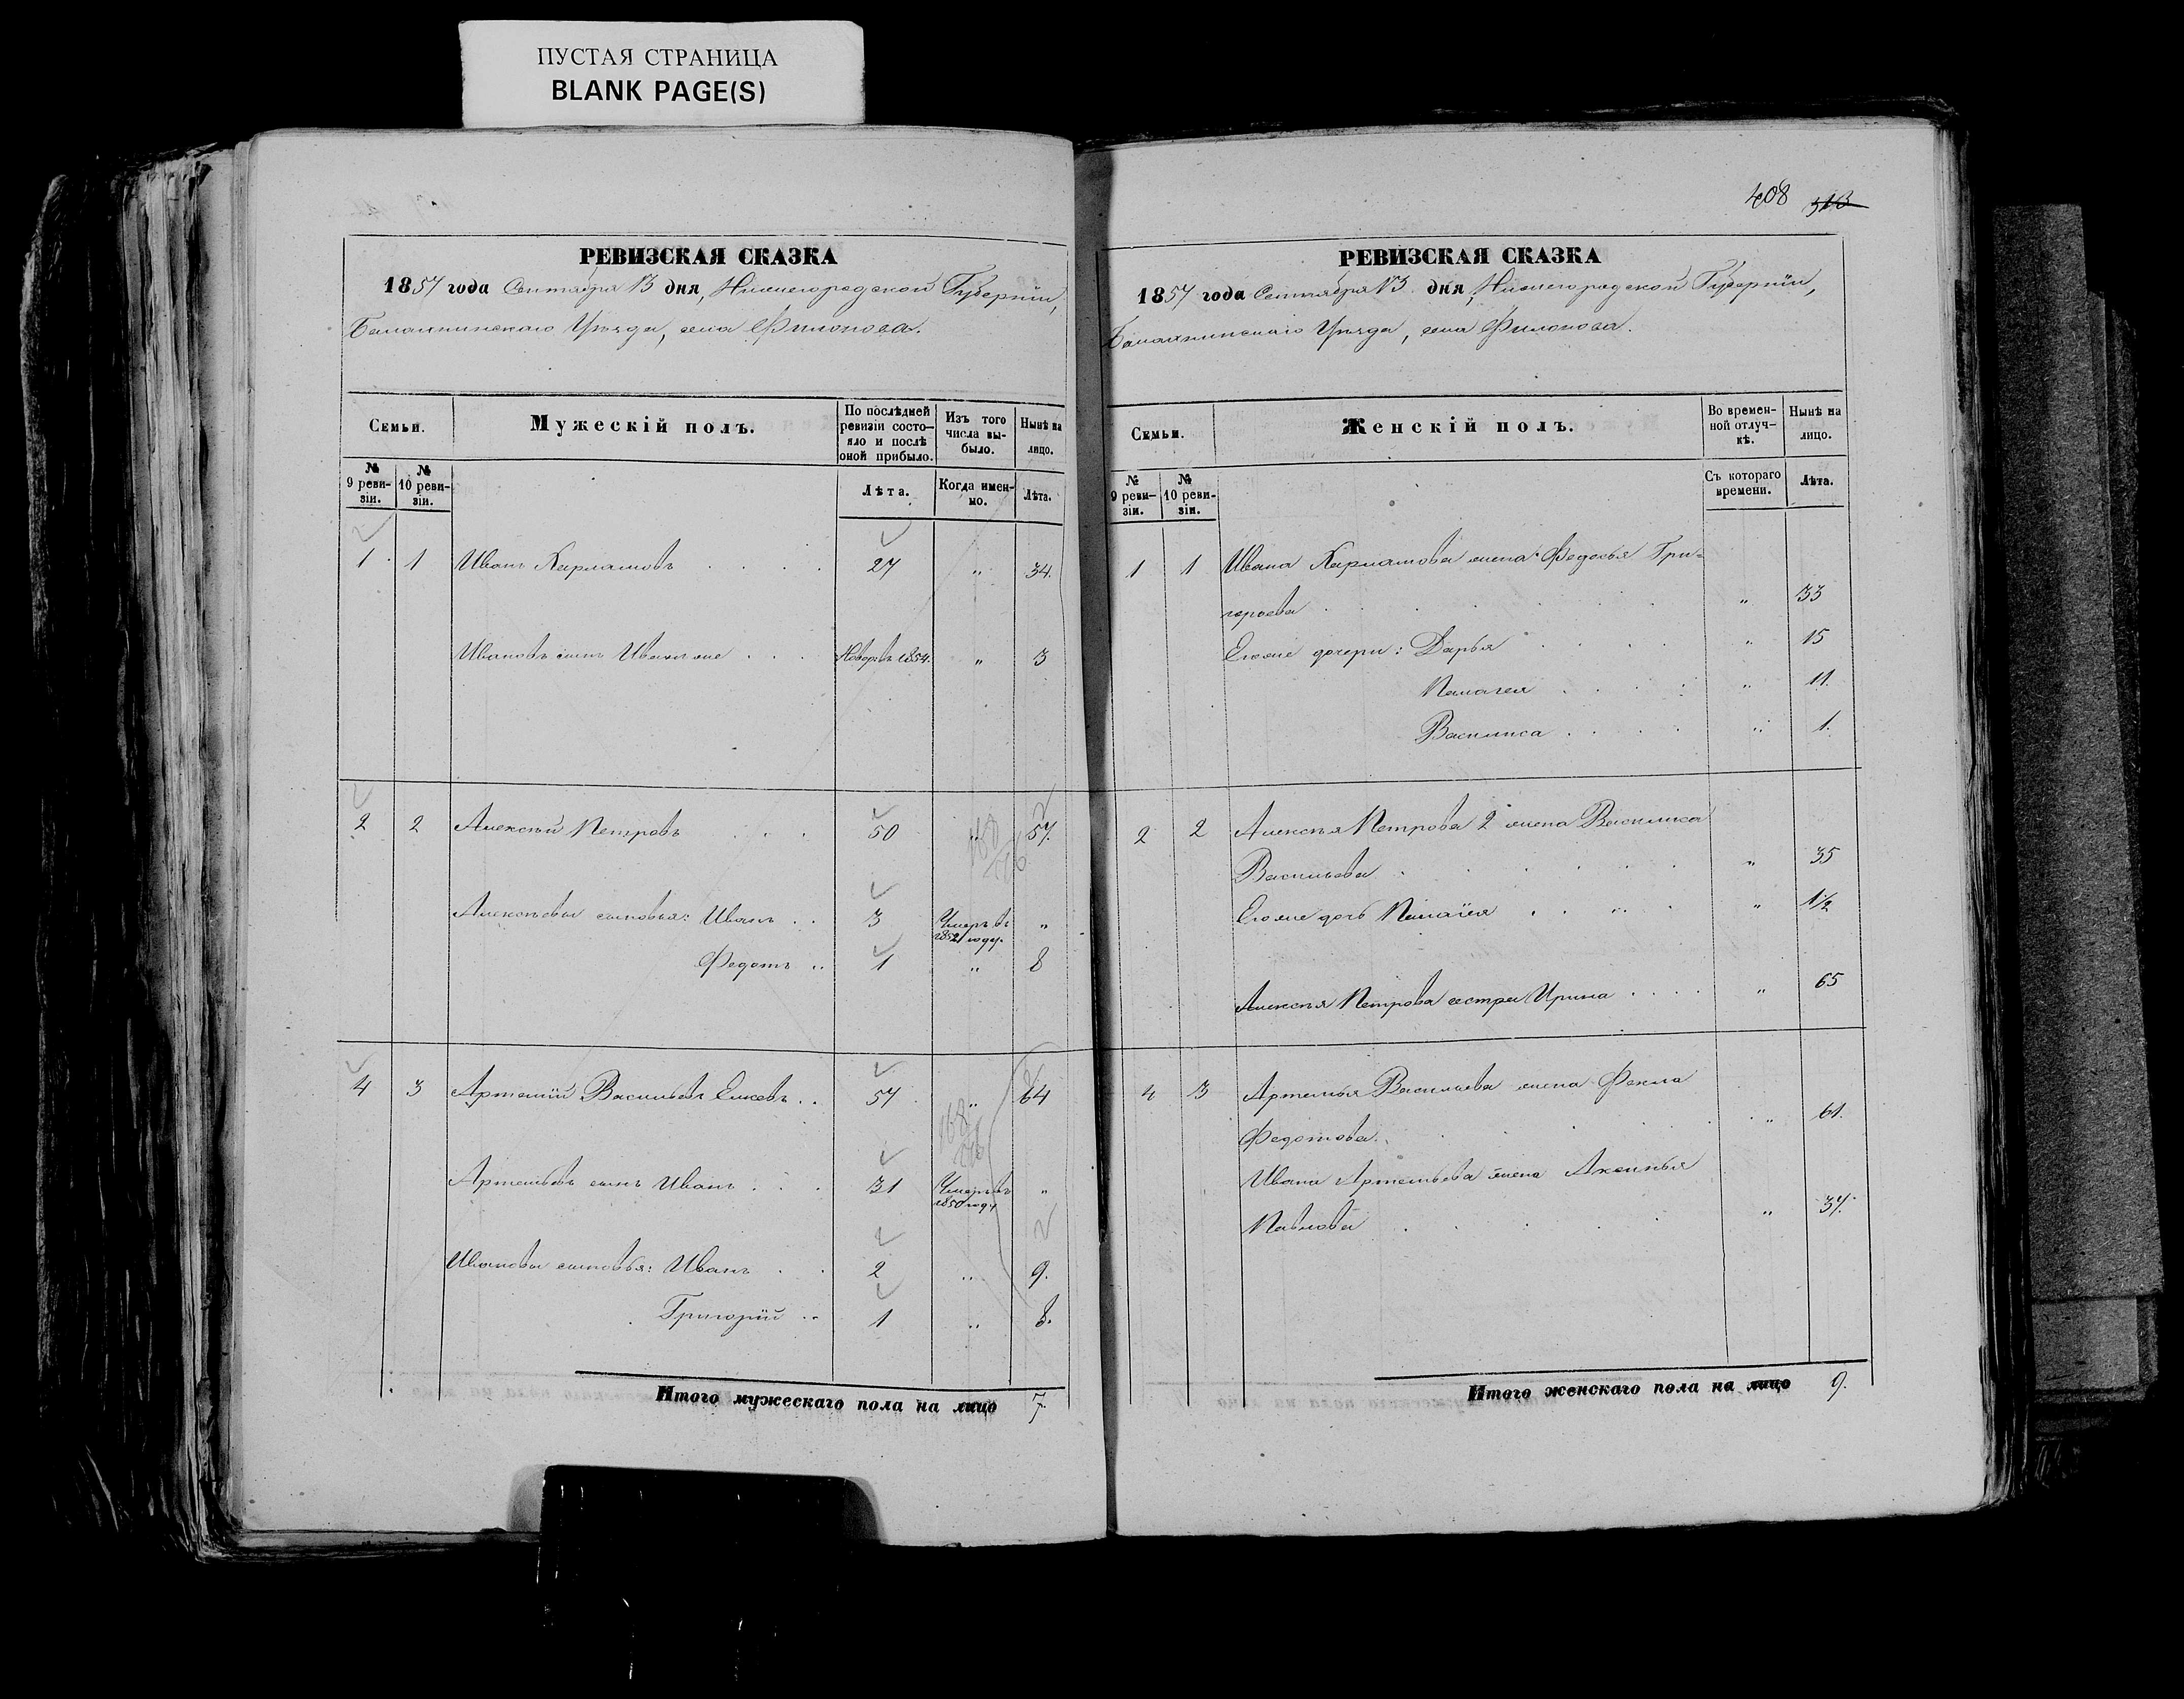 ПУСТАЯ СТРАНИЦА
BLANK PAGE(S)
РЕВИЗСКАЯ СКАЗКА
1857 года Сентября 13 дня, Нижегородской Губерніи,
Балахнинскаго Уѣзда, села Филонова.
Семьи.
Мужескій полъ.
По послѣдней ревизіи состояло и послѣ оной прибыло.
Изъ того числа выбыло.
Нынѣ на лицо.
№ 9 ревизіи.
№ 10 ревизіи.
Лѣта.
Когда именно.
Лѣта.
1 1 Иванъ Харламовъ . . . . 27 „ 34.
Ивановъ сынъ Иванъ же . . . Новорж. 1854. „ 3
2 2 Алексѣй Петровъ . . . 50 „ 57.
Алексѣевы сыновья: Иванъ . . 3 Умеръ въ 1852 году. „
Федотъ .. 1 „ 8
4 3 Артемій Васильевъ Елисевъ . . 57 „ 64
Артемьевъ сынъ Иванъ . . . 31 Умеръ въ 1850 году „
Ивановы сыновья: Иванъ . . 2 „ 9.
Григорій .. 1 „ 8.
Итого мужескаго пола на лицо 7.
408 513
РЕВИЗСКАЯ СКАЗКА
1857 года Сентября 13 дня, Нижегородской Губерніи,
Балахнинскаго Уѣзда, села Филонова.
Семьи.
Женскій полъ.
Во временной отлучкѣ.
Нынѣ на лицо.
№ 9 ревизіи.
№ 10 ревизіи.
Съ котораго времени.
Лѣта.
1 1 Ивана Харламова жена Федосья Гри-
горьева . . . „ 33
Егоже дочери: Дарья . . . . „ 15
Пелагея . . . . „ 11.
Василиса . . . . „ 1.
2 2 Алексѣя Петрова 2 жена Василиса
Васильева . . . „ 35
Егоже дочь Пелагея . . . . „ 1½
Алексѣя Петрова сестра Ирина . . . . „ 65
4 3 Артемья Васильева жена Фекла
Федотова . . . „ 61.
Ивана Артемьева жена Аксинья
Павлова . . . „ 37.
Итого женскаго пола на лицо 9.